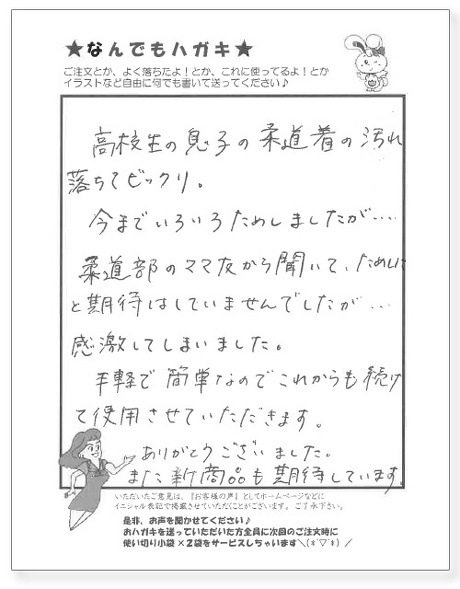 ★なんでもハガキ★
ご注文とか、よく落ちたよ！とか、これに使ってるよ！とか
イラストなど自由に何でも書いて送ってください♪
高校生の息子の柔道着の汚れ
落ちてビックリ。
今までいろいろためしましたが‥‥
柔道部のママ友から聞いて、ためしに
と期待はしていませんでしたが‥‥
感激してしまいました。
手軽で簡単なのでこれからも続け
て使用させていただきます。
ありがとうございました。
また新商品も期待しています。
いただいたご意見は、『お客様の声』としてホームページなどに
イニシャル表記で掲載させていただくことがございます。ご了承下さい。
是非、お声を聞かせてください♪
おハガキを送っていただいた方全員に次回のご注文時に
使い切り小袋×２袋をサービスしちゃいます＼(*´▽`*)／